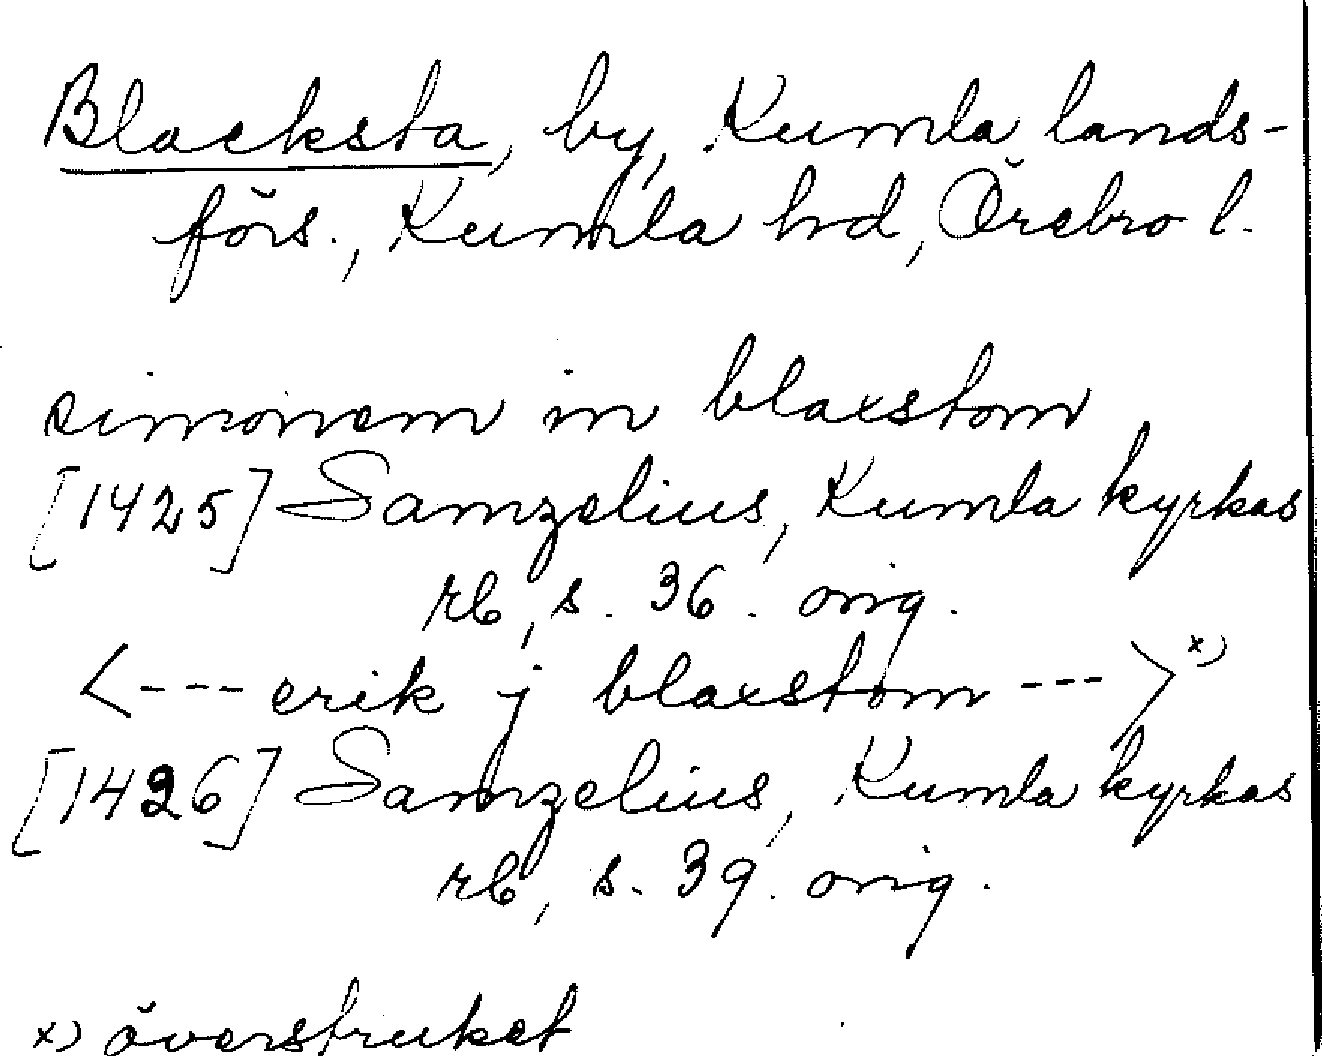 Blacksta, by, Kumla lands-
förs., Kumla hd, Örebro l.
simonem in blaxstom
[1425] Samzelius, Kumla kyrkas
rb, s. 36. orig.
<--- erik j blaxstom --->x)
[1426] Samzelius, Kumla kyrkas
rb, s. 39. orig.
x) överstruket